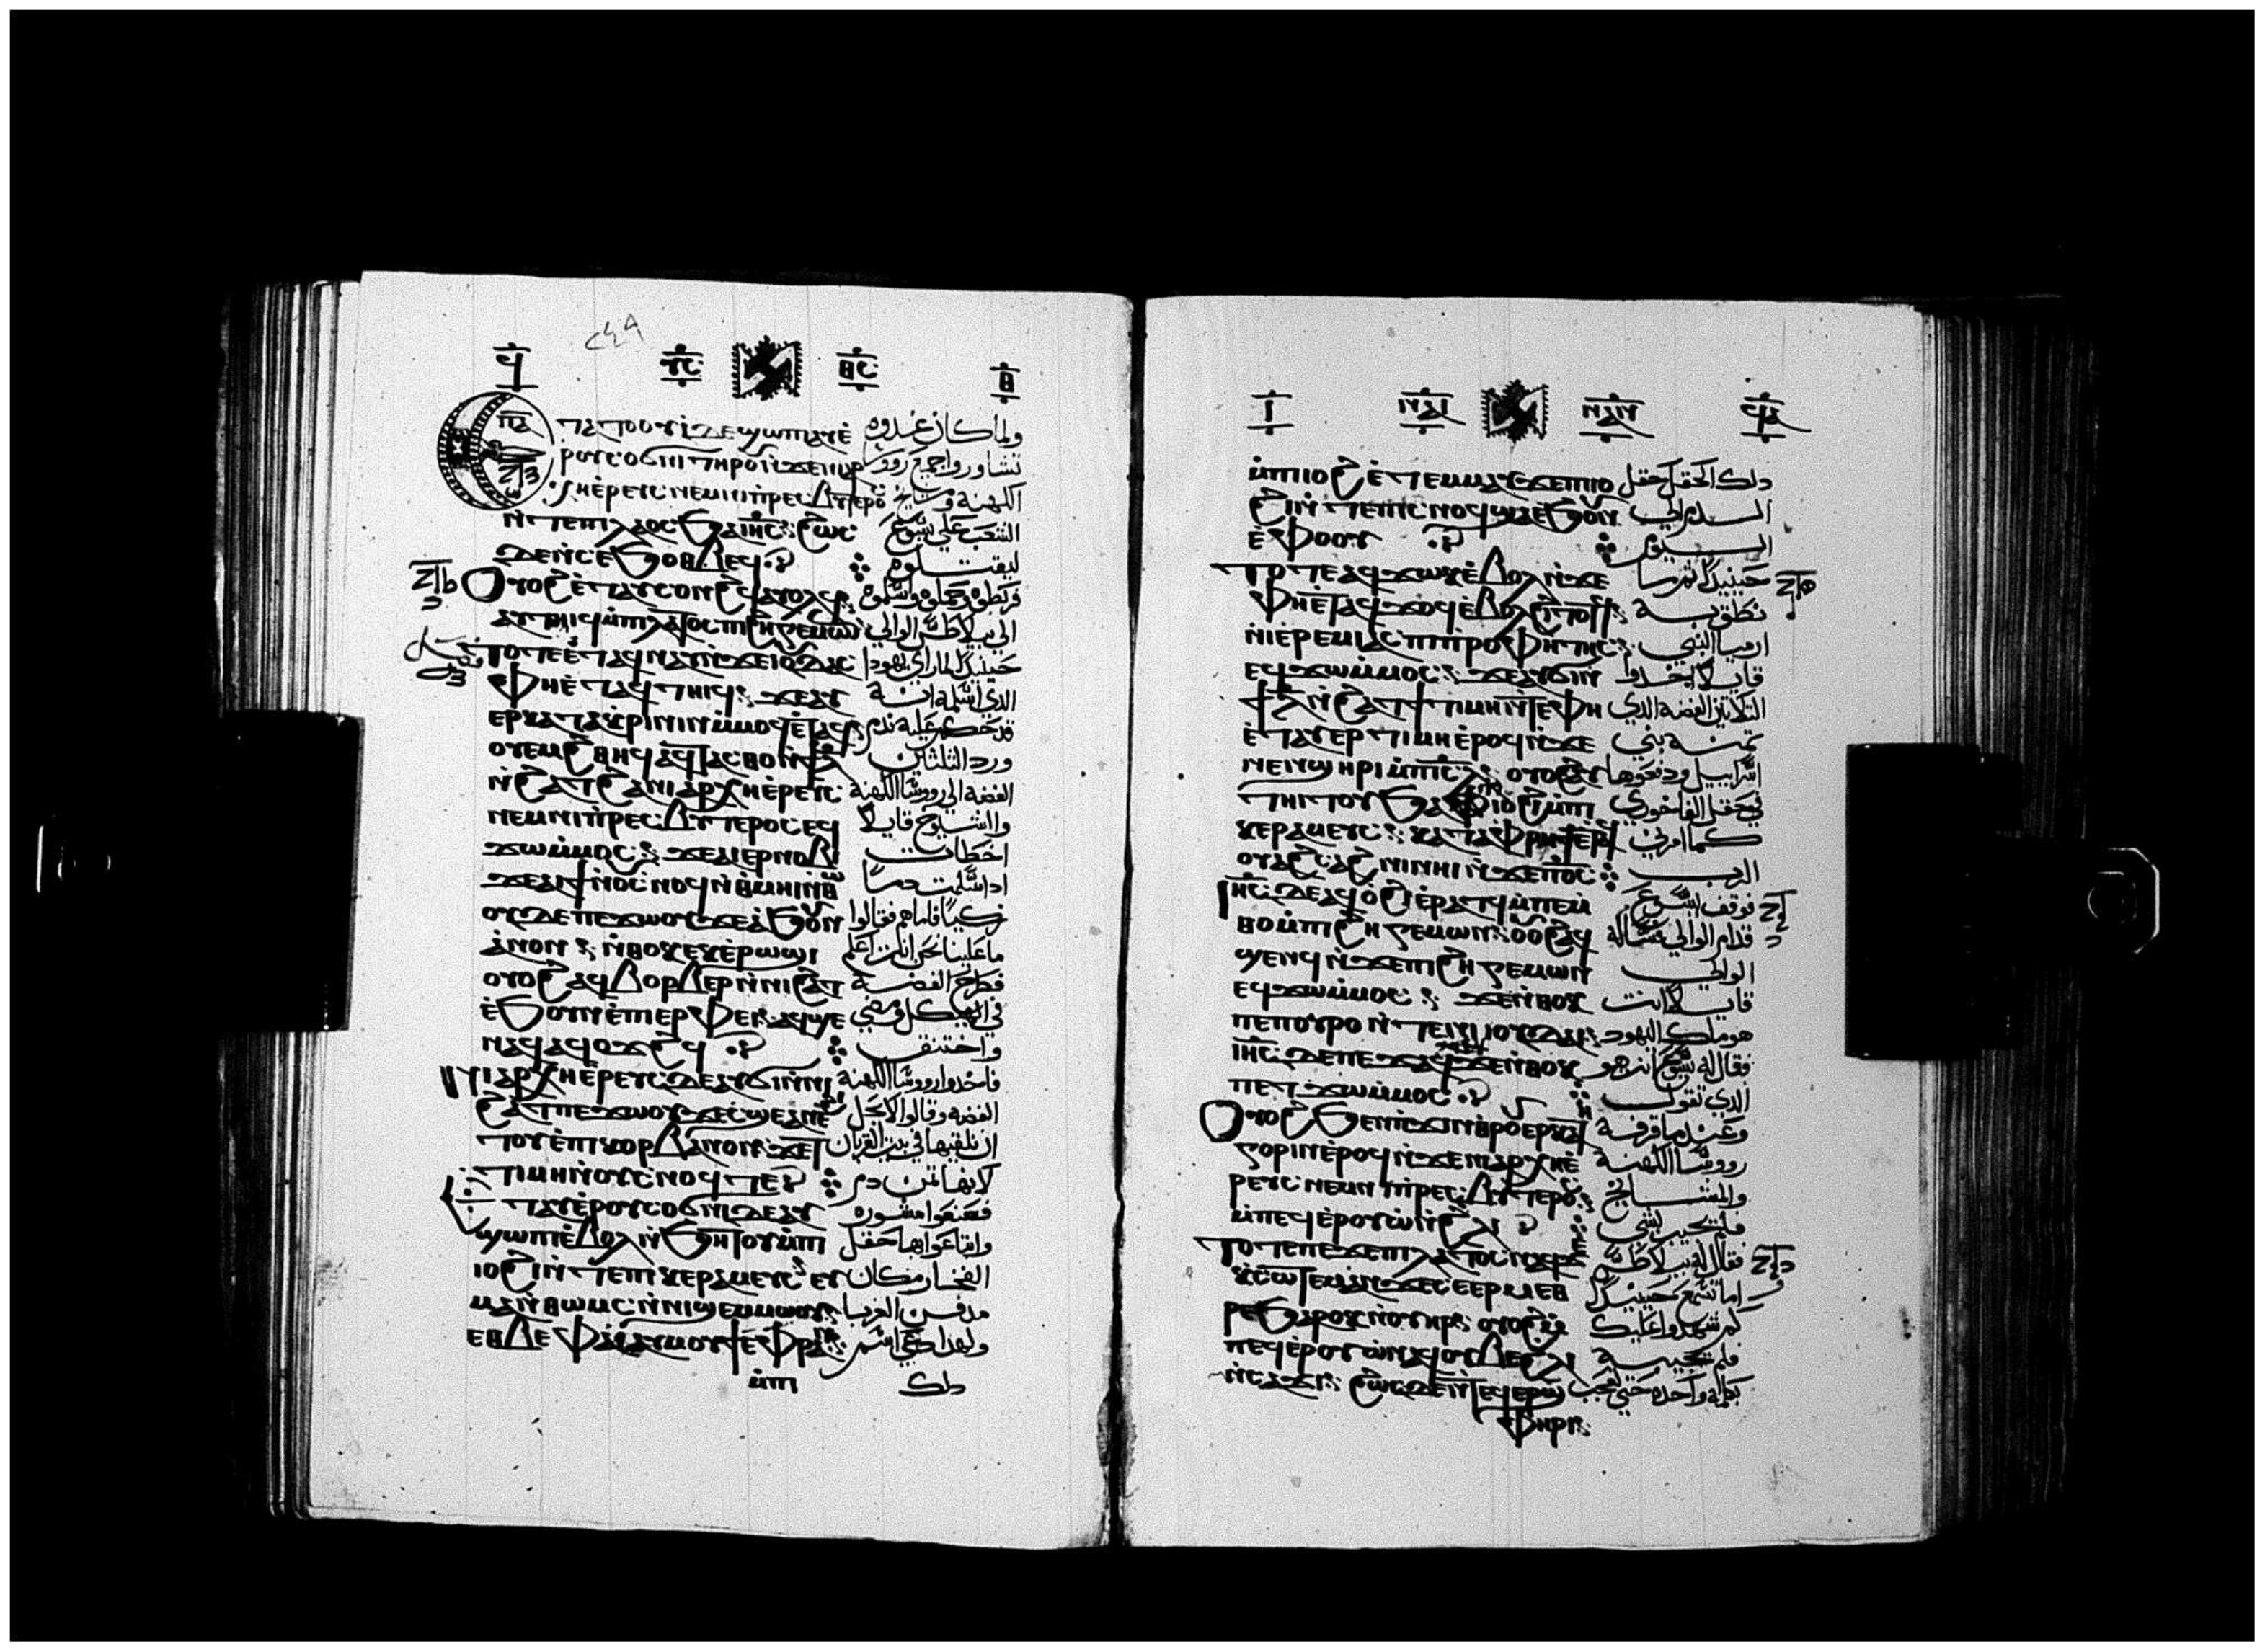 ϥ ⲩ̅ⲥ̅ ⲑ̅ⲥ̅ ⲃ
ⲧⲁⲧⲟⲟⲩⲓ ⲇⲉ ϣⲱⲡⲓ ⲁⲩⲉ̀ ولما كان غدوه
ⲣⲟⲩⲥⲟϭⲛⲓ ⲧⲏⲣⲟⲩ ⲛ̀ϫⲉ ⲛⲓⲁⲣ تشاوروا جميع روو
ⲭⲏⲉⲣⲉⲩⲥ ⲛⲉⲙ ⲛⲓⲡⲣⲉⲥⲃⲩⲧⲉⲣⲟⲥ الكهنة ومشايخ
ⲛ̀ⲧⲉ ⲡⲓⲗⲁⲟⲥ ϧⲁ ⲓⲏ̅ⲥ̅ ϩⲱⲥ الشعب علي يسوع
ⲇⲉ ⲛ̀ⲥⲉϧⲟⲑⲃⲉϥ ليقتلوه
ⲟⲩⲟϩ ⲉ̀ⲧⲁⲩⲥⲟⲛϩϥ ⲁⲩⲟⲗϥ وربطوه وحملوه واسلموه
ⲁⲩⲧⲏⲓϥ ⲙ̀ⲡⲓⲗⲁⲧⲟⲥ ⲡⲓϩⲏⲅⲉⲙⲱⲛ الي بيلاطس الوالي
ⲧⲟⲧⲉ ⲉ̀ⲧⲁϥⲛⲁⲩ ⲛ̀ϫⲉ ⲓⲟⲩⲇⲁⲥ حينيذ لما راي يهودا
ⲫⲏⲉ̀ⲧⲁϥⲧⲏⲓϥ ϫⲉ ⲁⲩ الذي اسلمه انه
ⲉⲣⲕⲁⲧⲁⲕⲣⲓⲛⲓⲛ ⲙ̀ⲙⲟϥ ⲉ̀ⲧⲁϥ قد حكم عليه ندم
ⲟⲩⲉⲙϩⲑⲏϥ ⲁϥⲧⲁⲥⲑⲟ ⲙ̀ⲡⲓⲗ̅ ورد الثلثين
ⲛ̀ϩⲁⲧ ϩⲁ ⲛⲓⲁⲣⲭⲏⲉ̀ⲣⲉⲩⲥ الفضه الي روسا الكهنة
ⲛⲉⲙ ⲛⲓⲡⲣⲉⲥⲃⲩⲧⲉⲣⲟⲥ ⲉϥ والشيوخ قايلا
ϫⲱⲙ̀ⲙⲟⲥ ϫⲉ ⲁⲓⲉⲣⲛⲟⲃⲓ اخطات
ϫⲉ ⲁⲓϯ ⲛ̀ⲟⲩⲥⲛⲟϥ ⲛ̀ⲑⲙⲏⲓ ⲛ̀ⲑⲱ اد اسلمت دمًا
ⲟⲩ ⲇⲉ ⲡⲉϫⲱⲟⲩ ϫⲉ ⲁϧⲟⲛ زكيًا فاما هم فقالوا
ⲁ̀ⲛⲟⲛ ⲛ̀ⲑⲟⲕ ⲉⲕⲉ̀ⲣⲱϣⲓ ما علينا نحن انت اعلم
ⲟⲩⲟϩ ⲁϥⲃⲟⲣⲃⲉⲣ ⲛ̀ⲛⲓϩⲁⲧ فطرح الفضه
ⲉ̀ϧⲟⲩⲛ ⲉ̀ⲡⲓⲉⲣⲫⲉⲓ ⲁϥϣⲉ في الهيكل ومضي
ⲛⲁϥ ⲁϥⲟϫϩϥ واختنق
ⲛⲓⲁⲣⲭⲏⲉ̀ⲣⲉⲩⲥ ⲇⲉ ⲁⲩϭⲓ ⲛ̀ⲛⲓ فاخدوا رووسا الكهنة
ϩⲁⲧ ⲡⲉϫⲱⲟⲩ ϫⲉ ⲥϣⲉ ⲁⲛ ⲉ̀ الفضه وقالوا لا يحل
ⲧⲟⲩ ⲉ̀ⲡⲓⲕⲟⲣⲃⲁⲛⲟⲛ ϫⲉ ⲧ ان نلقيها في بيت القربان
ⲧⲓⲙⲏ ⲛ̀ⲟⲩⲥⲛⲟϥ ⲧⲉ لانها ثمن دم
ⲉ̀ⲧⲁⲩⲉ̀ⲣⲟⲩⲥⲟϭⲛⲓ ⲇⲉ ⲁⲩ فصنعوا مشوره
ϣⲱⲡ ⲉ̀ⲃⲟⲗ ⲛ̀ϧⲏⲧⲟⲩ ⲙ̀ⲡⲓ وابتاعوا بها حقل
ⲓⲟϩⲓ ⲛ̀ⲧⲉ ⲡⲓⲕⲉⲣⲁⲙⲉⲩⲥ ⲉⲩ الفخار مكان
ⲙⲁ ⲛ̀ⲑⲱⲙⲥ ⲛ̀ⲛⲓϣⲉⲙⲙⲱⲟⲩ مدفن الغربا
ⲉⲑⲃⲉ ⲫⲁⲓ ⲁⲩⲙⲟⲩϯ ⲉ̀ⲫⲣⲁⲛ ولهذا دعي اسم
ⲙ̀ⲡⲓ دلك
ⲓ ⲛⲁⲓ ⲛⲁⲛ ϥⲁ
ⲙ̀ⲡⲓⲓⲟϩⲓ ⲉ̀ⲧⲉⲙⲙⲁⲩ ϫⲉ ⲡⲓⲓⲟ دلك الحقل حقل
ϩⲓ ⲛ̀ⲧⲉ ⲡⲓⲥⲛⲟϥ ϣⲁ ⲉ̀ϧⲟⲩⲛ الدم الي
ⲉ̀ⲫⲟⲟⲩ اليوم
ⲧⲟⲧⲉ ⲁϥϫⲱⲕ ⲉ̀ⲃⲟⲗ ⲛ̀ϫⲉ حينيذ تم ما
ⲫⲏⲉ̀ⲧⲁϥϫⲟϥ ⲉ̀ⲃⲟⲗϩⲓⲧⲟⲧϥ نطق به
ⲛ̀ⲓⲉⲣⲉⲙⲓⲁⲥ ⲡⲓⲡⲣⲟⲫⲏⲧⲏⲥ ارميا النبي
ⲉϥϫⲱⲙ̀ⲙⲟⲥ ϫⲉ ⲁⲩϭⲓ قايلا اخدوا
ϯⲗ̅ ⲛ̀ϩⲁⲧ ϯⲧⲓⲙⲏ ⲛ̀ⲧⲉ ⲫⲏ الثلاثين الفضه الذي
ⲉ̀ⲧⲁⲩⲉⲣⲧⲓⲙⲏ ⲉ̀ⲣⲟϥ ⲛ̀ϫⲉ ثمنه بني
ⲛⲉⲛϣⲏⲣⲓ ⲙ̀ⲡⲓⲥ̅ⲗ̅ ⲟⲩⲟϩ ⲁⲩ اسراييل ودفعوها
ⲧⲏⲓⲧⲟⲩ ϧⲁ ⲫⲓⲟϩⲓ ⲙ̀ⲡⲓ في حقل الفاخوري
ⲕⲉⲣⲁⲙⲉⲩⲥ ⲕⲁⲧⲁ ⲫⲣⲏϯ ⲉ̀ⲧⲁϥ كما امرني
ⲟⲩⲁϩⲥⲁϩⲛⲓ ⲛⲏⲓ ⲛ̀ϫⲉ ⲡϭⲟⲓⲥ الرب
ⲓⲏ̅ⲥ̅ ⲇⲉ ⲁϥⲟ̀ϩⲓ ⲉ̀ⲣⲁⲧϥ ⲙ̀ⲡⲉⲙ فوقف يسوع
ⲑⲟ ⲙ̀ⲡⲓϩⲏⲅⲉⲙⲱⲛ ⲟⲩⲟϩ ⲁϥ قدام الوالي فساله
ϣⲉⲛϥ ⲛ̀ϫⲉ ⲡⲓϩⲏⲅⲉⲙⲱⲛ الوالي
ⲉϥϫⲱⲙ̀ⲙⲟⲥ ϫⲉ ⲛ̀ⲑⲟⲕ قايلًا انت
ⲡⲉ ⲡⲟⲩⲣⲟ ⲛ̀ⲧⲉ ⲛⲓⲓⲟⲩⲇⲁⲓ هو ملك اليهود
ⲓⲏ̅ⲥ̅ ⲇⲉ ⲡⲉϫⲁϥ ⲛⲁϥ ϫⲉ ⲛ̀ⲑⲟⲕ فقال له يسوع انت هو
ⲡⲉⲧϫⲱⲙ̀ⲙⲟⲥ الذي تقول
ⲟⲩⲟϩ ϧⲉⲛ ⲡϫⲓⲛⲑⲣⲟⲩⲉⲣⲕⲁⲧⲏ وعند ما قرفه
ⲅⲟⲣⲓⲛ ⲉ̀ⲣⲟϥ ⲛ̀ϫⲉ ⲛⲓⲁⲣⲭⲏⲉ̀ رووسا الكهنة
ⲣⲉⲩⲥ ⲛⲉⲙ ⲛⲓⲡⲣⲉⲥⲃⲩⲧⲉⲣⲟⲥ والمشايخ
ⲙ̀ⲡⲉϥⲉ̀ⲣⲟⲩⲱ ⲛ̀ϩⲗⲓ فلم يجيب بشي
ⲧⲟⲧⲉ ⲡⲉϫⲉ ⲡⲓⲗⲁⲧⲟⲥ ⲛⲁϥ ϫⲉ فقال له بيلاطس
ⲕⲥⲱⲧⲉⲙ ⲁⲛ ϫⲉ ⲥⲉⲉⲣⲙⲉⲑ اما تسمع حينيذ
ⲣⲉ ϧⲁⲣⲟⲕ ⲛ̀ⲟⲩⲏⲣ ⲟⲩⲟϩ ⲙ̀ كم شهدوا عليك
ⲡⲉϥⲉ̀ⲣⲟⲩⲱ̀ ⲛⲁϥ ⲟⲩⲃⲉ ϩⲗⲓ فلم يجيبه
ⲛ̀ⲥⲁϫⲓ ϩⲱⲥⲇⲉ ⲛ̀ⲧⲉϥⲉⲣϣ بكلمه واحده حتي تعجب
ⲫⲏⲣⲓ